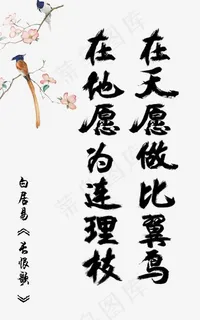 在天愿做比翼鸟
在他愿为连理枝
白居易《长恨歌》